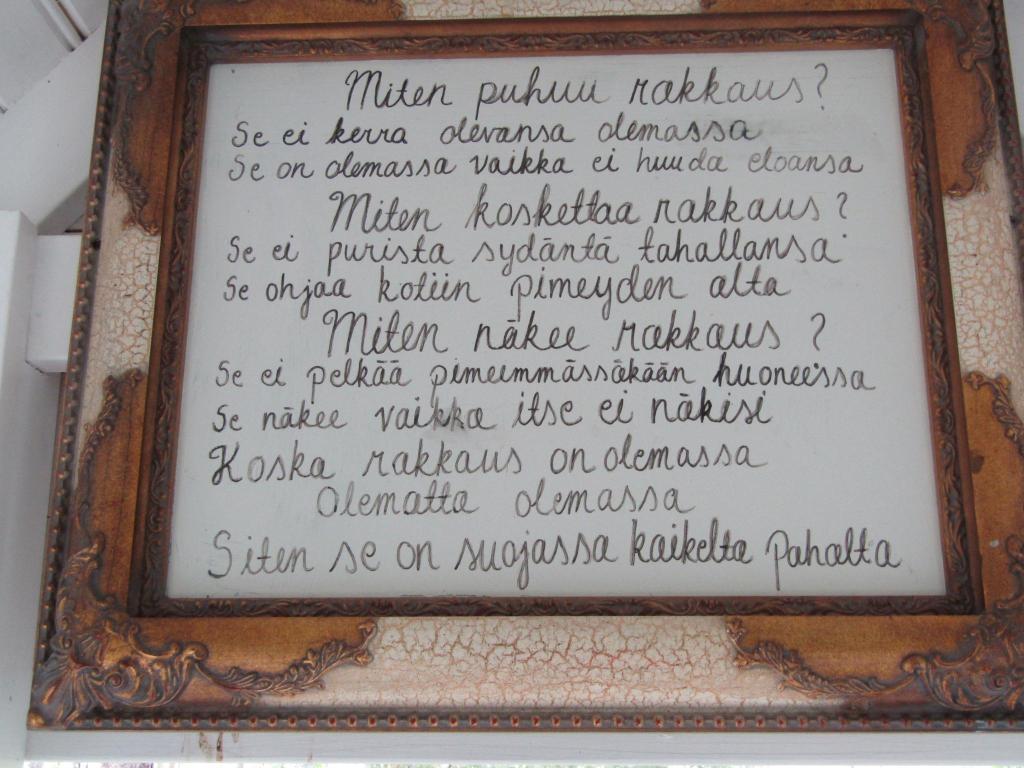 Miten puhuu rakkaus?
Se ei kerra olevansa olemassa
Se on olemassa vaikka ei huuda eloansa
Miten koskettaa rakkaus?
Se ei purista sydäntä tahallansa
Se ohjaa kotiin pimeyden alta
Miten näkee rakkaus?
Se ei pelkää pimeimmässäkään huoneessa
Se näkee vaikka itse ei näkisi
Koska rakkaus on olemassa
Olematta olemassa
Siten se on suojassa kaikelta pahalta